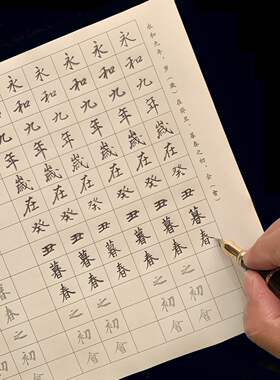 永和九年,岁(歲)在癸丑,暮春之初,会(會)
永和九年歲在癸丑暮春
永和九年歲在癸丑暮春之初會
永和九年歲在癸丑暮春之初會
永和九年歲在癸丑暮春之初會
永和九年歲在癸丑暮春之初會
永和九年歲在癸丑暮春之初會